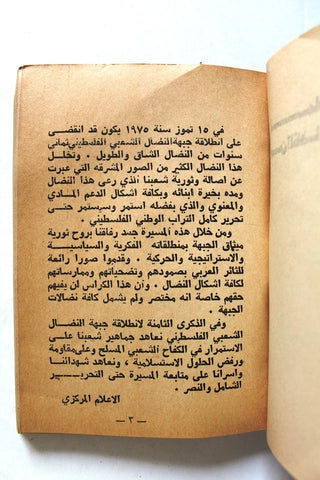 في ١٥ تموز سنة ١٩٧٥ يكون قد انقضى
على انطلاقة جبهة النضال الشعبي الفلسطيني ثماني
سنوات من النضال الشاق والطويل . وتخلل
هذا النضال الكثير من الصور المشرقه التي عبرت
عن اصالة وثورية شعبنا الذي رعى هذا النضال
ومده بخيرة ابنائه وبكافة اشكال الدعم المادي
والمعنوي والذي بفضله استمر وسيستمر حتى
تحرير كامل التراب الوطني الفلسطيني .
ومن خلال هذه المسيرة جسد رفاقنا بروح ثورية
ميثاق الجبهة بمنطلقاته الفكرية والسياسية
والاستراتيجية والحركية . وقدموا صورا رائعة
للثائر العربي بصمودهم وتضحياتهم وممارساتهم
لكافة اشكال النضال . وأن هذا الكراس لن يفيهم
حقهم خاصة انه مختصر ولم يشمل كافة نضالات
الجبهة .
وفي الذكرى الثامنة لانطلاقة جبهة النضال
الشعبي الفلسطيني نعاهد جماهير شعبنا على
الاستمرار في الكفاح الشعبي المسلح وعلى مقاومة
ورفض الحلول الاستسلامية ، ونعاهد شهدائنا
واسرانا على متابعة المسيرة حتى التحرير
الشامل والنصر .
الاعلام المركزي
— ٣ —